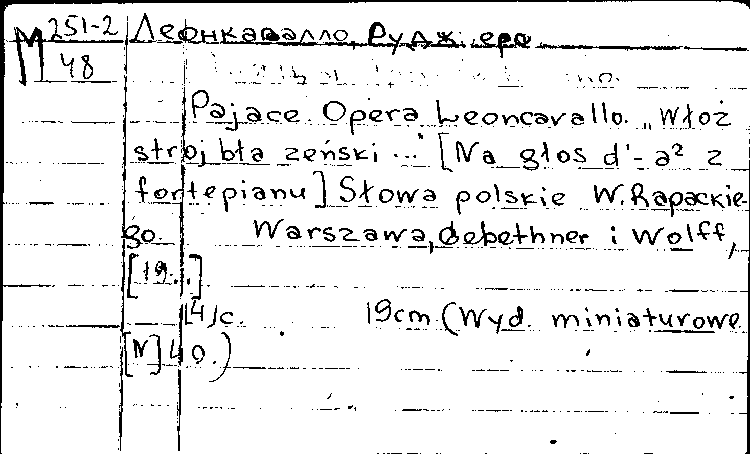 М 251-2 Леонкавалло, Руджеро
48
Pajace. Opera Leoncavallo. „Włoż
strój błazeński..." [Na głos d'-a² z
fortepianu] Słowa polskie W. Rapackie-
go. Warszawa, Gebethner i Wolff,
[19..]
[4] c. 19cm (Wyd. miniaturowe
[N] 40.)